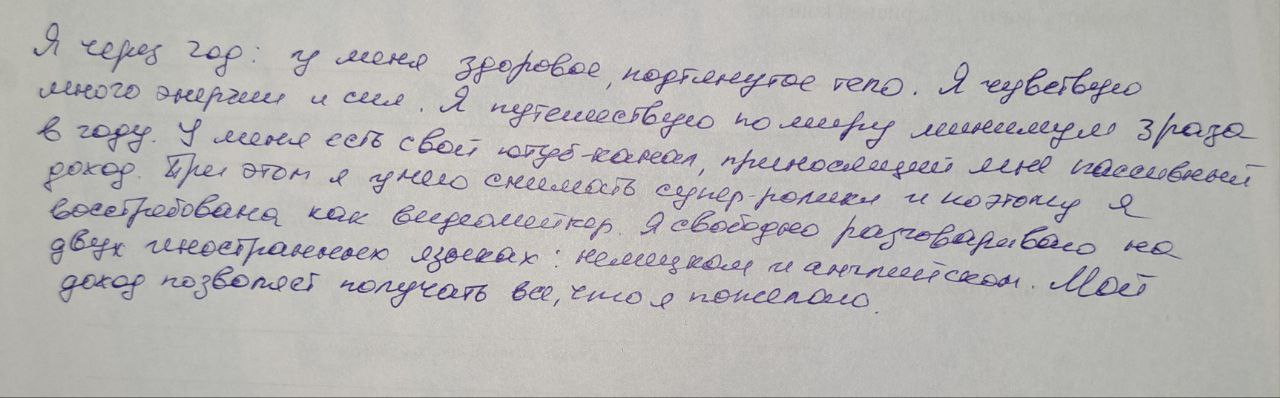 Я через год: у меня здоровое, подтянутое тело. Я чувствую
много энергии и сил. Я путешествую по миру минимум 3 раза
в году. У меня есть свой ютуб-канал, приносящий мне пассивный
доход. При этом я умею снимать супер-ролики и поэтому я
востребована как видеомейкер. Я свободно разговариваю на
двух иностранных языках: немецком и английском. Мой
доход позволяет получать все, что я пожелаю.